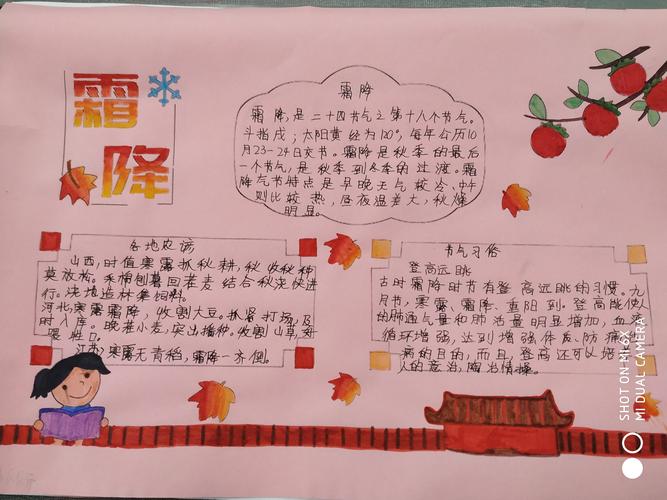 霜
降
霜降
霜降,是二十四节气之第十八个节气。
斗指戌;太阳黄经为210°,每年公历10
月23-24日交节。霜降是秋季的最后
一个节气,是秋季到冬季的过渡。霜
降气节特点是早晚天气较冷、中午
则比较热,昼夜温差大,秋燥
明显。
各地农谚
山西,时值寒露抓秋耕,秋收秋种
莫放松。采棉刨薯回茬麦 结合秋浇快进
行。浇地造林集饲料。
河北寒露霜降,收割大豆。抓紧打场,及
时入库。晚茬小麦,突出播种。收割山草,
喂牲口。
江苏,寒露无青稻,霜降一齐倒。
节气习俗
登高远眺
古时霜降时节有登高远眺的习惯。九
月节,寒露、霜降、重阳到。登高能使人
的肺通气量和肺活量明显增加,血液
循环增强,达到增强体质、防病
病的目的,而且,登高还可以培
人的意治,陶冶情操。
SHOT ON MI 6X
MI DUAL CAMERA